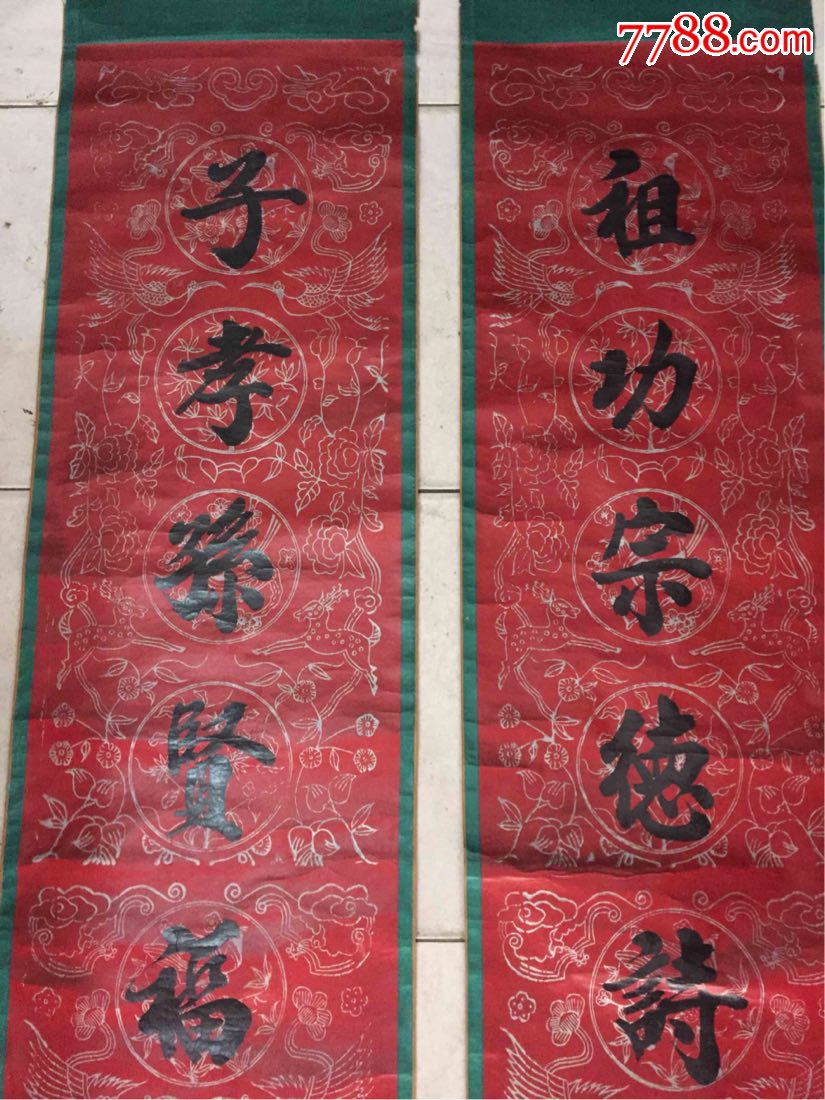 7788.com
祖功宗德詩
子孝孫賢福